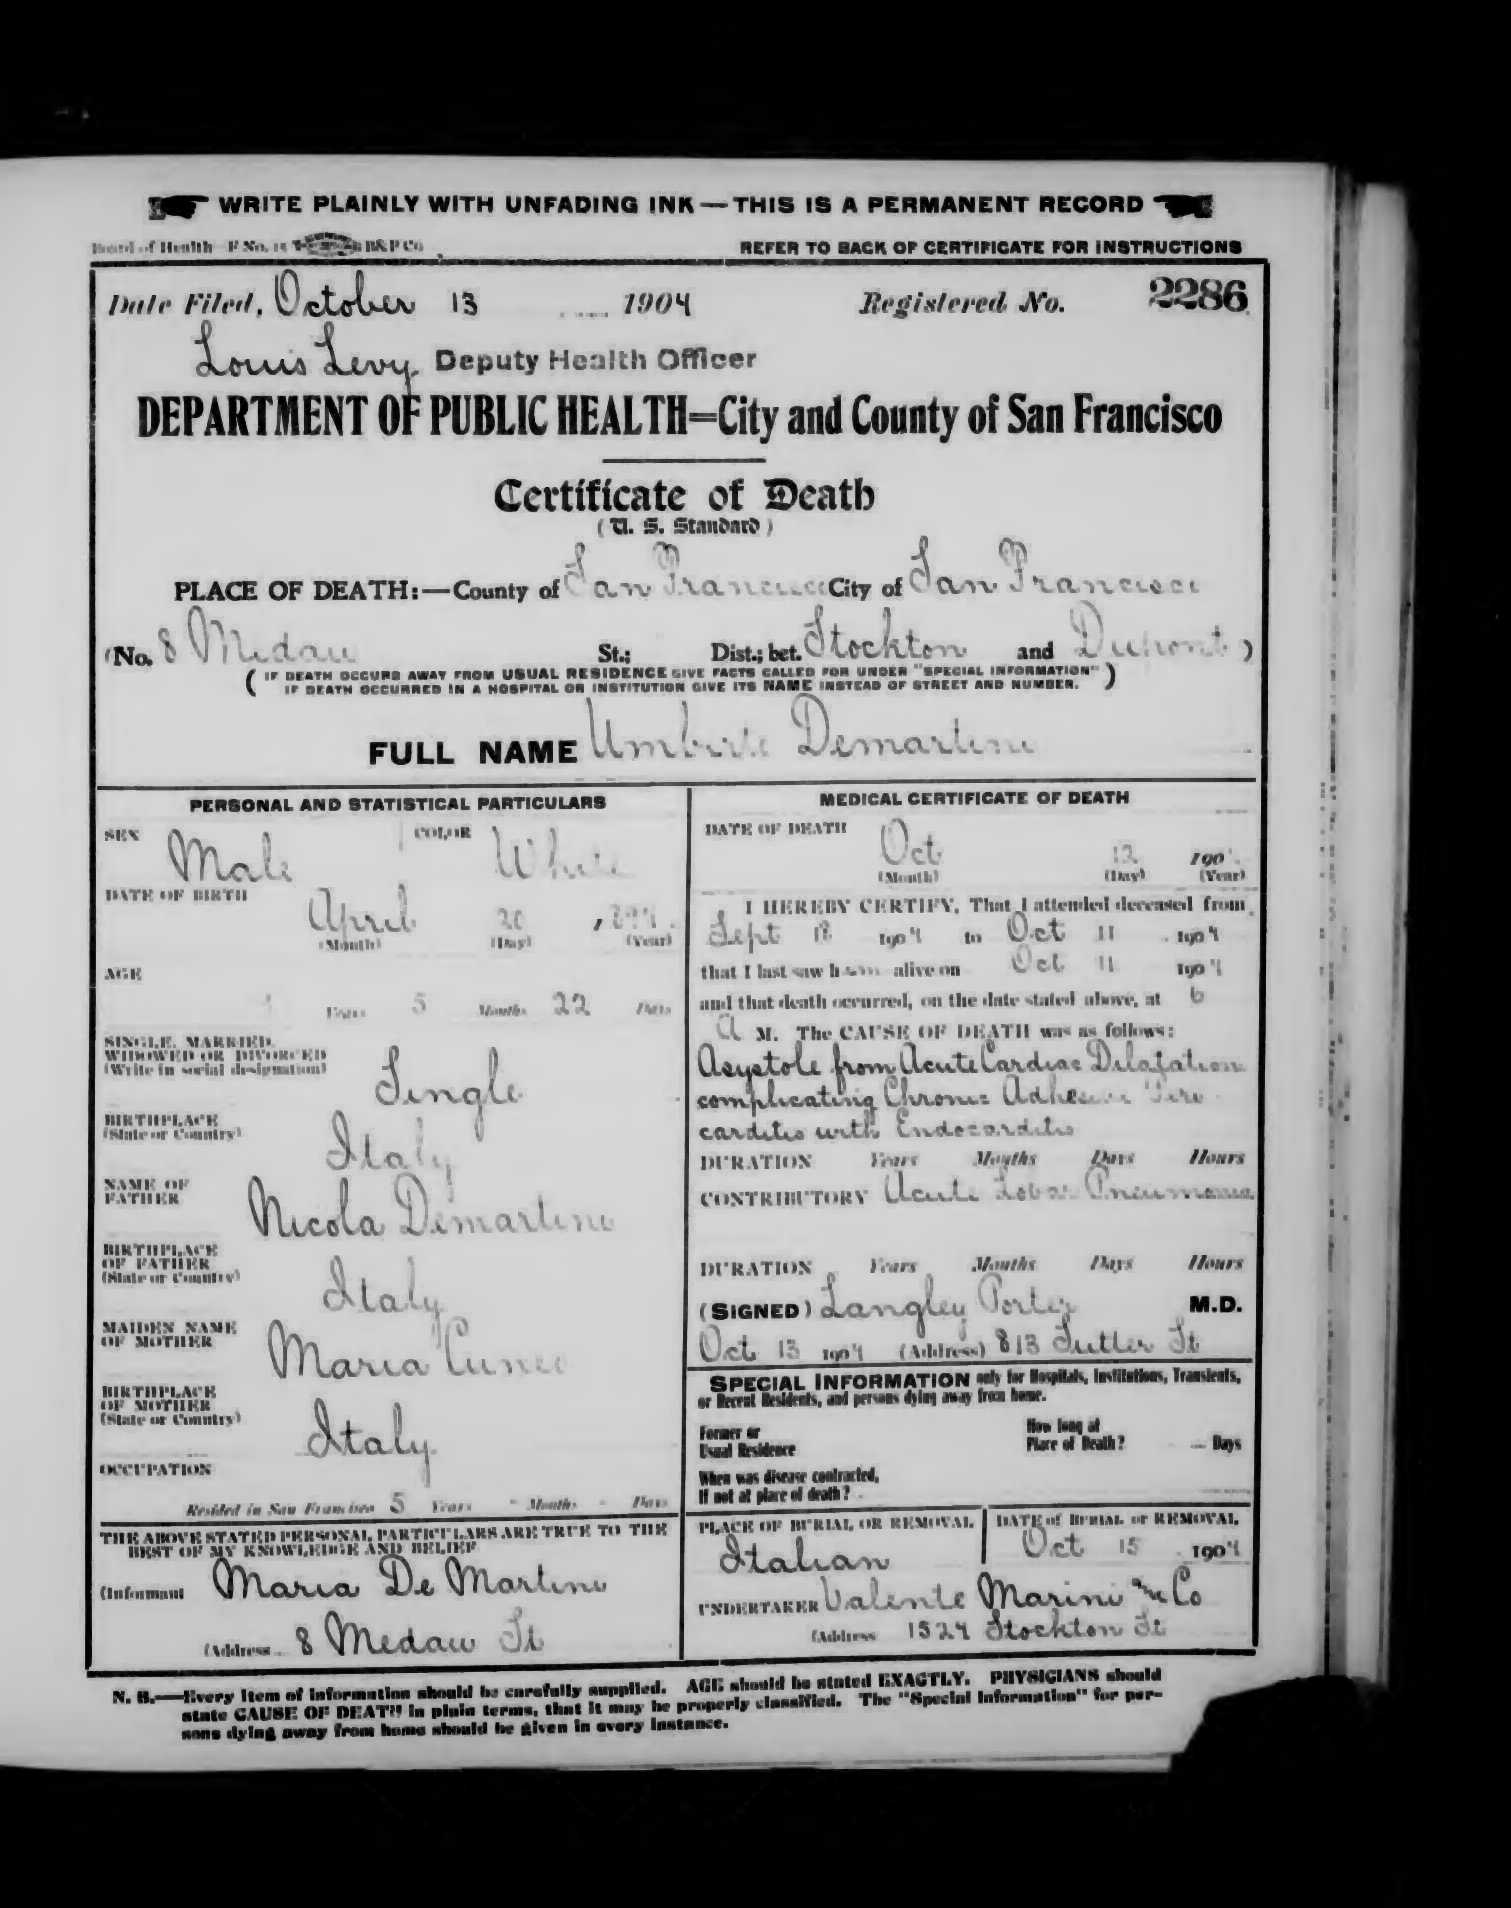 WRITE PLAINLY WITH UNFADING INK—THIS IS A PERMANENT RECORD
Board of Health—F No. 15 B&P Co
REFER TO BACK OF CERTIFICATE FOR INSTRUCTIONS
Date Filed, October 13 1904 Registered No. 2286
Louis Levy Deputy Health Officer
DEPARTMENT OF PUBLIC HEALTH=City and County of San Francisco
Certificate of Death
(U. S. Standard)
PLACE OF DEATH:—County of San Francisco City of San Francisco
(No. 8 Medau St.; Dist.; bet. Stockton and Dupont)
(IF DEATH OCCURS AWAY FROM USUAL RESIDENCE GIVE FACTS CALLED FOR UNDER "SPECIAL INFORMATION"
IF DEATH OCCURRED IN A HOSPITAL OR INSTITUTION GIVE ITS NAME INSTEAD OF STREET AND NUMBER.)
FULL NAME Umberto Demartini
PERSONAL AND STATISTICAL PARTICULARS
SEX Male COLOR White
DATE OF BIRTH
April 20
(Month) (Day) (Year)
AGE
Years 5 Months 22 Days
SINGLE, MARRIED,
WIDOWED OR DIVORCED
(Write in social designation)
Single
BIRTHPLACE
(State or Country)
Italy
NAME OF
FATHER
Nicola Demartini
BIRTHPLACE
OF FATHER
(State or Country)
Italy
MAIDEN NAME
OF MOTHER
Maria Cuneo
BIRTHPLACE
OF MOTHER
(State or Country)
Italy
OCCUPATION
Resided in San Francisco 5 Years - Months - Days
THE ABOVE STATED PERSONAL PARTICULARS ARE TRUE TO THE
BEST OF MY KNOWLEDGE AND BELIEF
(Informant Maria De Martini
(Address 8 Medau St
MEDICAL CERTIFICATE OF DEATH
DATE OF DEATH
Oct 12 190
(Month) (Day) (Year)
I HEREBY CERTIFY, That I attended deceased from
Sept 18 1904 to Oct 11 1904
that I last saw him alive on Oct 11 1904
and that death occurred, on the date stated above, at 6
A M. The CAUSE OF DEATH was as follows:
Asystole from Acute Cardiac Dilatation
complicating Chronic Adhesive Peri
carditis with Endocarditis
DURATION Years Months Days Hours
CONTRIBUTORY Acute Lobar Pneumonia
DURATION Years Months Days Hours
(SIGNED) Langley Porter M.D.
Oct 13 1904 (Address) 813 Sutter St
SPECIAL INFORMATION only for Hospitals, Institutions, Transients,
or Recent Residents, and persons dying away from home.
Former or
Usual Residence
How long at
Place of Death? Days
When was disease contracted,
If not at place of death?
PLACE OF BURIAL OR REMOVAL
Italian
DATE of BURIAL or REMOVAL
Oct 15 1904
UNDERTAKER Valente Marini and Co
(Address 1524 Stockton St
N. B.—Every item of information should be carefully supplied. AGE should be stated EXACTLY. PHYSICIANS should
state CAUSE OF DEATH in plain terms, that it may be properly classified. The "Special Information" for per-
sons dying away from home should be given in every instance.